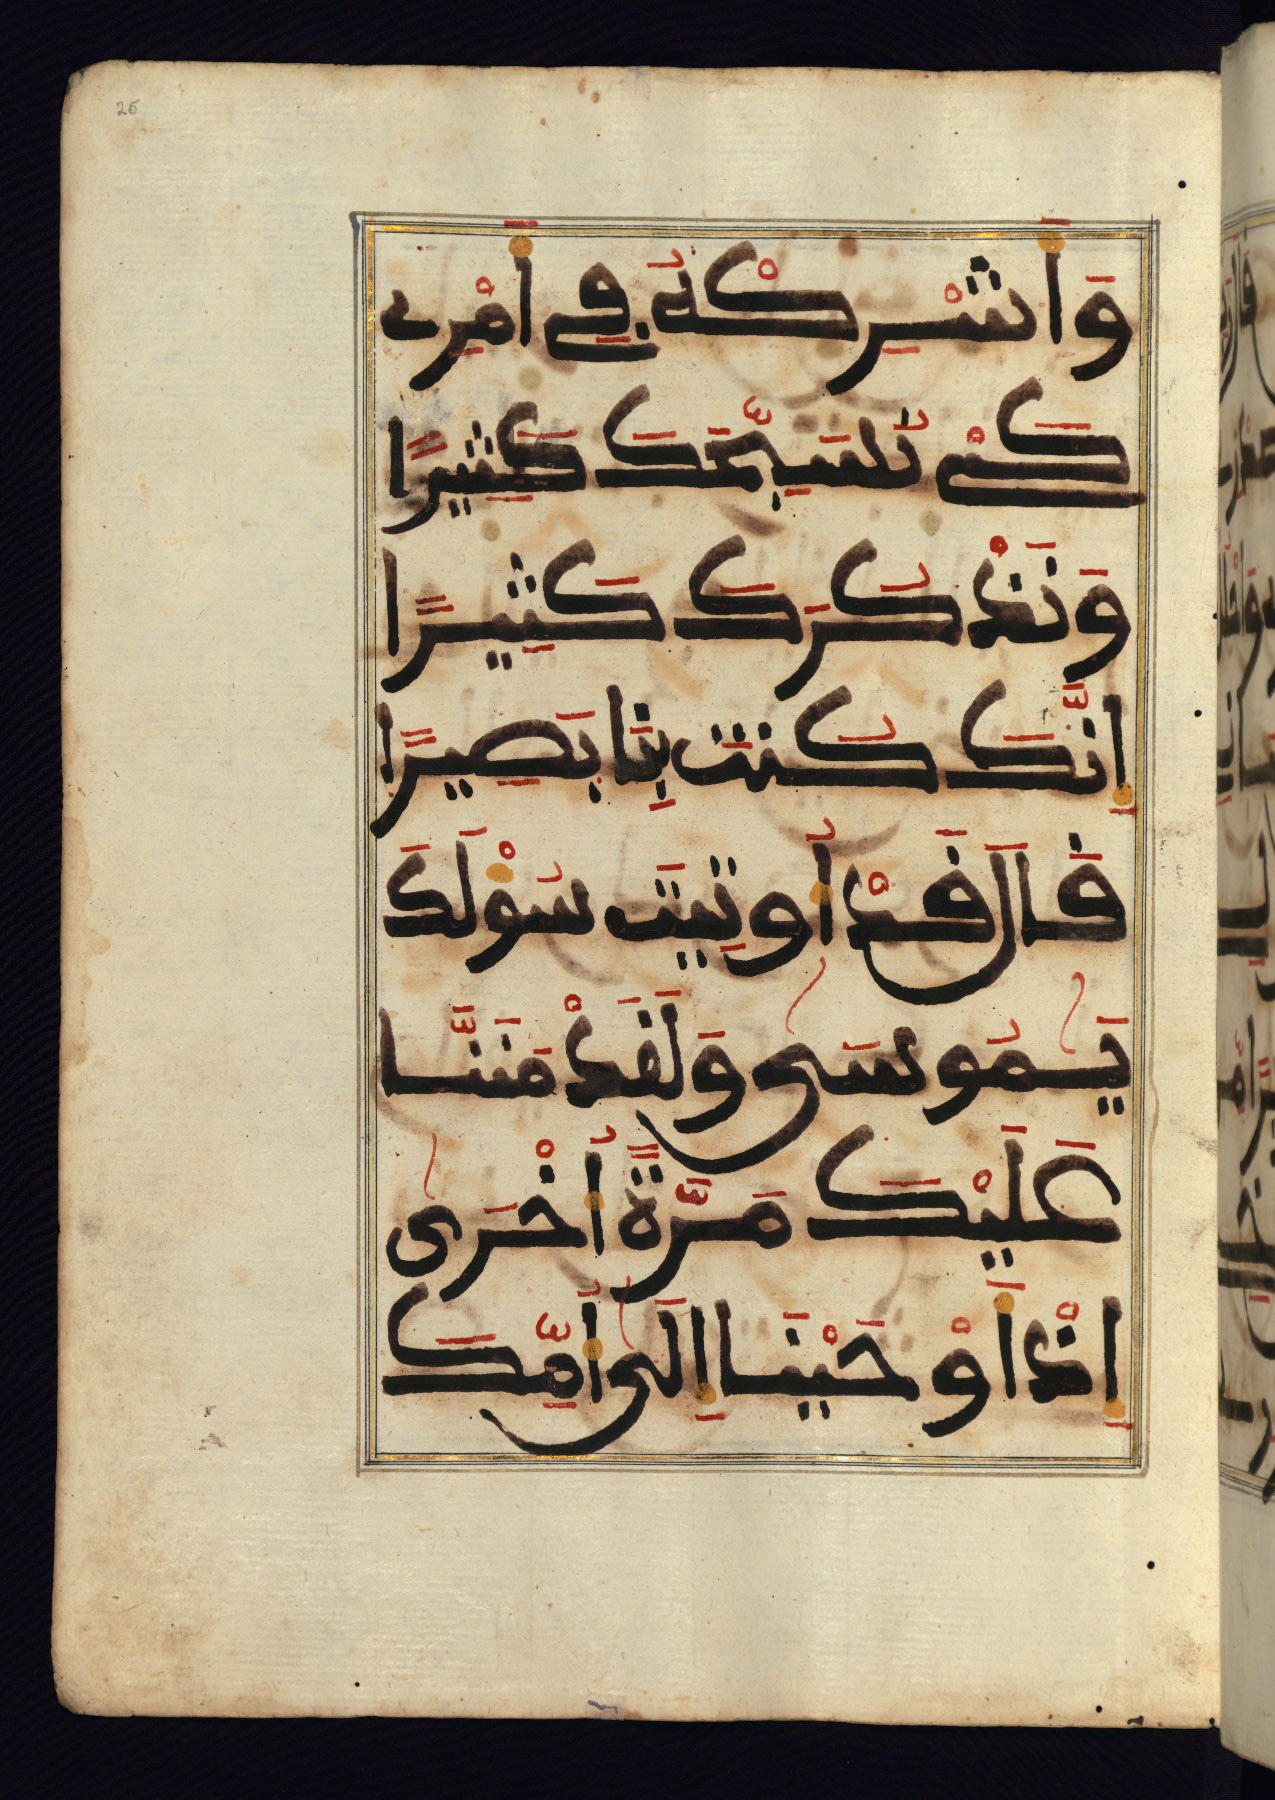 25
وَأَشْرِكْهُ فِي أَمْرِے
كَيْ نُسَبِّحَكَ كَثِيرًا
وَنَذْكُرَكَ كَثِيرًا
إِنَّكَ كُنتَ بِنَا بَصِيرًا
قَالَ قَدْ أُوتِيتَ سُؤْلَكَ
يَٰمُوسَىٰ وَلَقَدْ مَنَنَّا
عَلَيْكَ مَرَّةً أُخْرَىٰ
إِذْ أَوْحَيْنَا إِلَىٰ أُمِّكَ